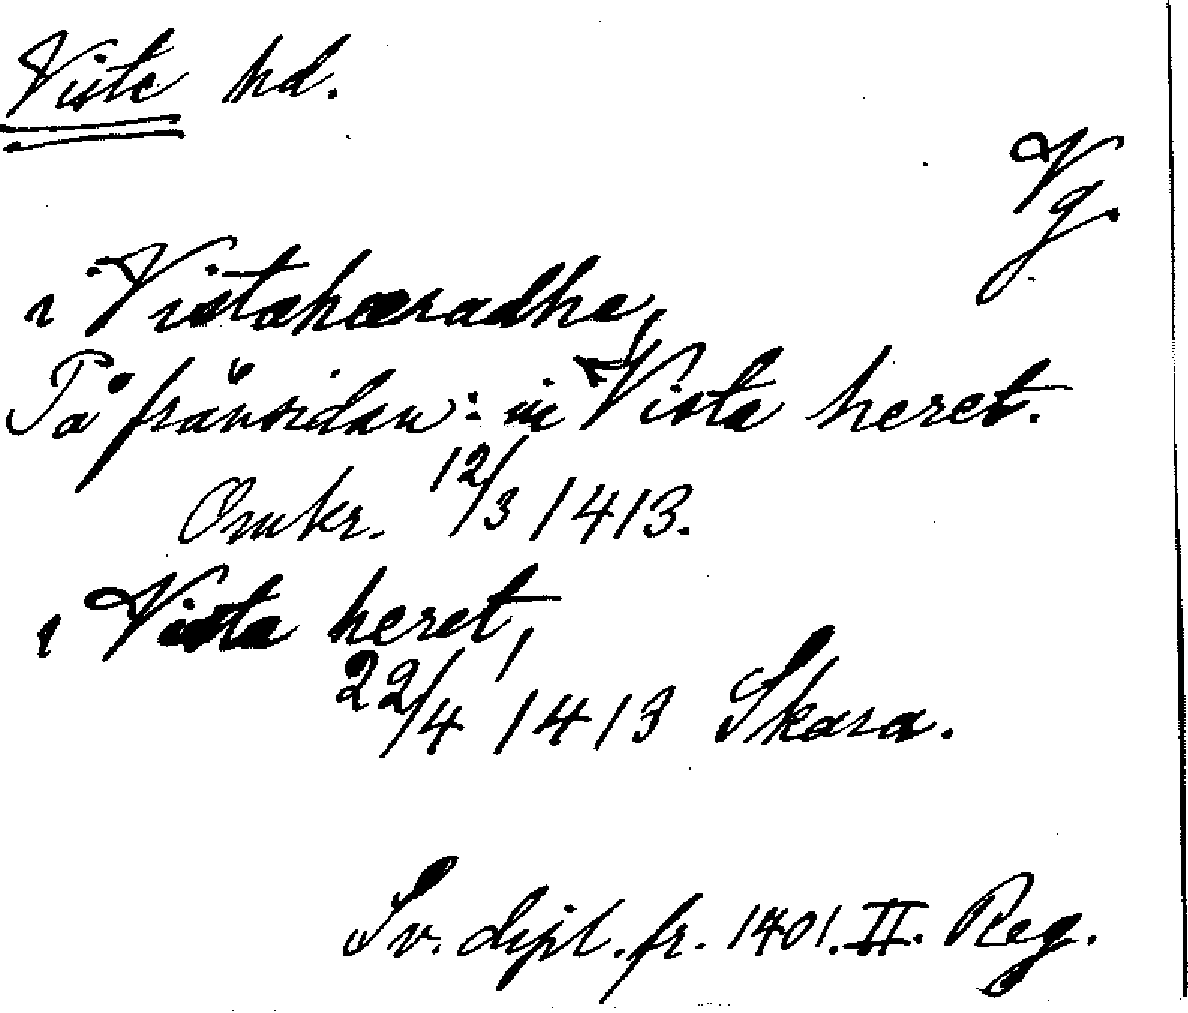 Viste hd.
Vg.
i Vistahæradhe,
På frånsidan: in Vista heret.
Omkr. 12/3 1413.
i Vista heret,
22/4 1413 Skara.
Sv. dipl. fr. 1401. II. Reg.